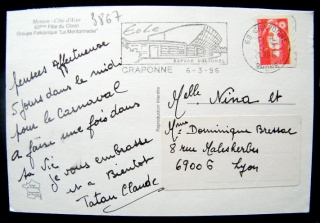 Menton - Côte d'Azur
62ème Fête du Citron
Groupe Folklorique "La Mentonnaise"
3867
CRAPONNE 6-3-96
ESPACE CULTUREL
pensées affectueuse
5 jours dans le midi
pour le Carnaval
a faire une fois dans
sa vie
je vous embrasse
et a Bientôt
Tatan Claude
Reproduction interdite
Melle Nina et
Mme Dominique Bressac
8 rue Malesherbes
69006 Lyon